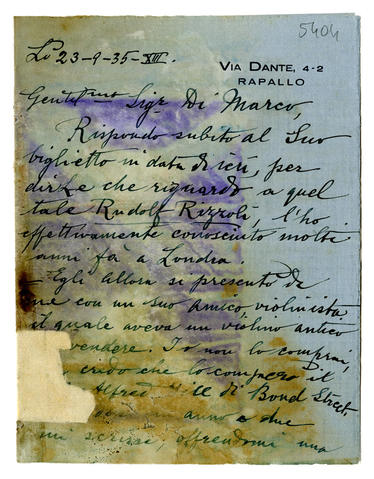 5404
VIA DANTE, 4-2
RAPALLO
Lì 23-9-35-XIII.
Gentilmo Sigr Di Marco,
Rispondo subito al Suo
biglietto in data di ieri, per
dirLe che riguardo a quel
tale Rudolf Rizzoli, l'ho
effettivamente conosciuto molti
anni fa a Londra
- Egli allora si presentò da
me con un suo amico violinista,
il quale aveva un violino antico
vendere. Io non lo comprai,
credo che lo comprò il
Alfred di Bond Street.
anno o due
mi scrisse, offrendomi una